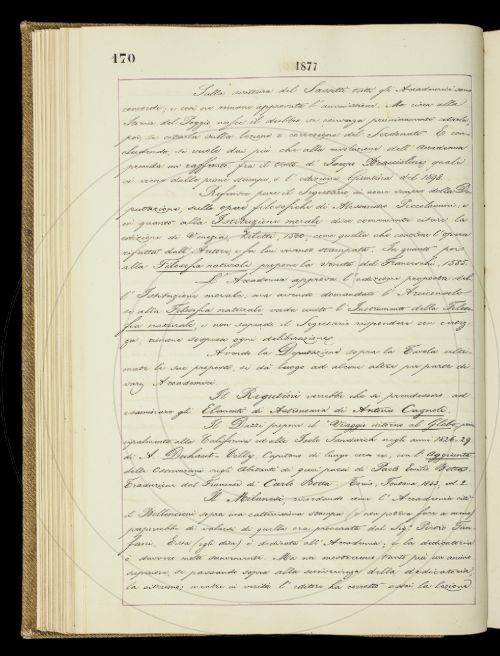 170
1877
Sulla scrittura del Sassetti tutti gli Accademici sono
concordi; e così ne rimane approvata l'ammissione. Ma circa alla
Storia del Poggio nasce il dubbio se convenga primieramente citarla,
poi, se citarla sulla lezione e correzione del Serdonati. E con-
cludendo, si vuole dai più che alla risoluzione dell'Accademia
preceda un raffronto fra il testo di Jacopo Bracciolini, quale
si reca dalle prime stampe, e l'edizione fiorentina del 1598.
Riferisce pure il Segretario in nome sempre della De-
putazione, sulle opere filosofiche di Alessandro Piccolomini; e
in quanto alla Istituzione morale dice conveniente citare la
edizione di Venezia, Ziletti 1560, come quella che contiene l'opera
rifatta dall'Autore, e fu più volte ristampata. In quanto poi
alla Filosofia naturale propone la veneta del Franceschi, 1585.
L'Accademia approva l'edizione proposta del-
l'Istituzione morale; ma avendo domandato l'Arciconsolo
se alla Filosofia naturale vada unito l'Instrumento della Filoso-
fia naturale, e non sapendo il Segretario rispondere con certez-
za, rimane sospesa ogni deliberazione.
Avendo la Deputazione sopra la Tavola ulti-
mate le sue proposte, si dà luogo ad alcune altre per parte di
varj Accademici.
Il Rigutini vorrebbe che si prendessero ad
esaminare gli Elementi di Astronomia di Antonio Cagnoli.
Il Dazzi propone il Viaggio intorno al Globo, prin-
cipalmente alla California ed alle Isole Sandwich negli anni 1826-29
di A. Duhaut-Cilly, Capitano di lungo corso ec., con l'Aggiunta
delle Osservazioni sugli abitanti di quei paesi di Paolo Emilio Botta.
Traduzione dal Francese di Carlo Botta. Torino, Fontana 1841, vol. 2.
Il Milanesi, ricordando come l'Accademia citi
il Bellincioni sopra una cattivissima stampa,
di quella ora procurata dal Sig.r Pietro Fan-
fani. Essa (egli dice) è dedicata all'Accademia; e la dedicatoria
è davvero nata sconveniente. Ma noi mostreremo tanto più un animo
superiore, se passando sopra alla sconvenienza della dedicatoria,
la citeremo, mentre in verità l'editore ha corretto assai la lezione